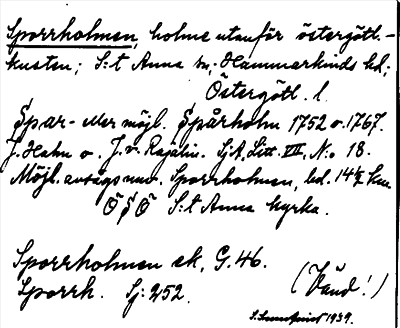 Sporrholmen, holme utanför östergötl.-
kusten; S:t Anna sn; Hammarkinds hd;
Östergötl. l.
Spar- eller möjl. Spårholm 1752 o. 1767.
J. Hahn o. J. v. Rajalin. SjA, Litt. VII, N:o 18.
Möjl. avsågs nuv. Sporrholmen, bel. 14½ km
ÖSÖ S:t Anna kyrka.
Sporrholmen ek, G. 46.
Sporrh. Sj: 252.
(Vänd!)
1939.